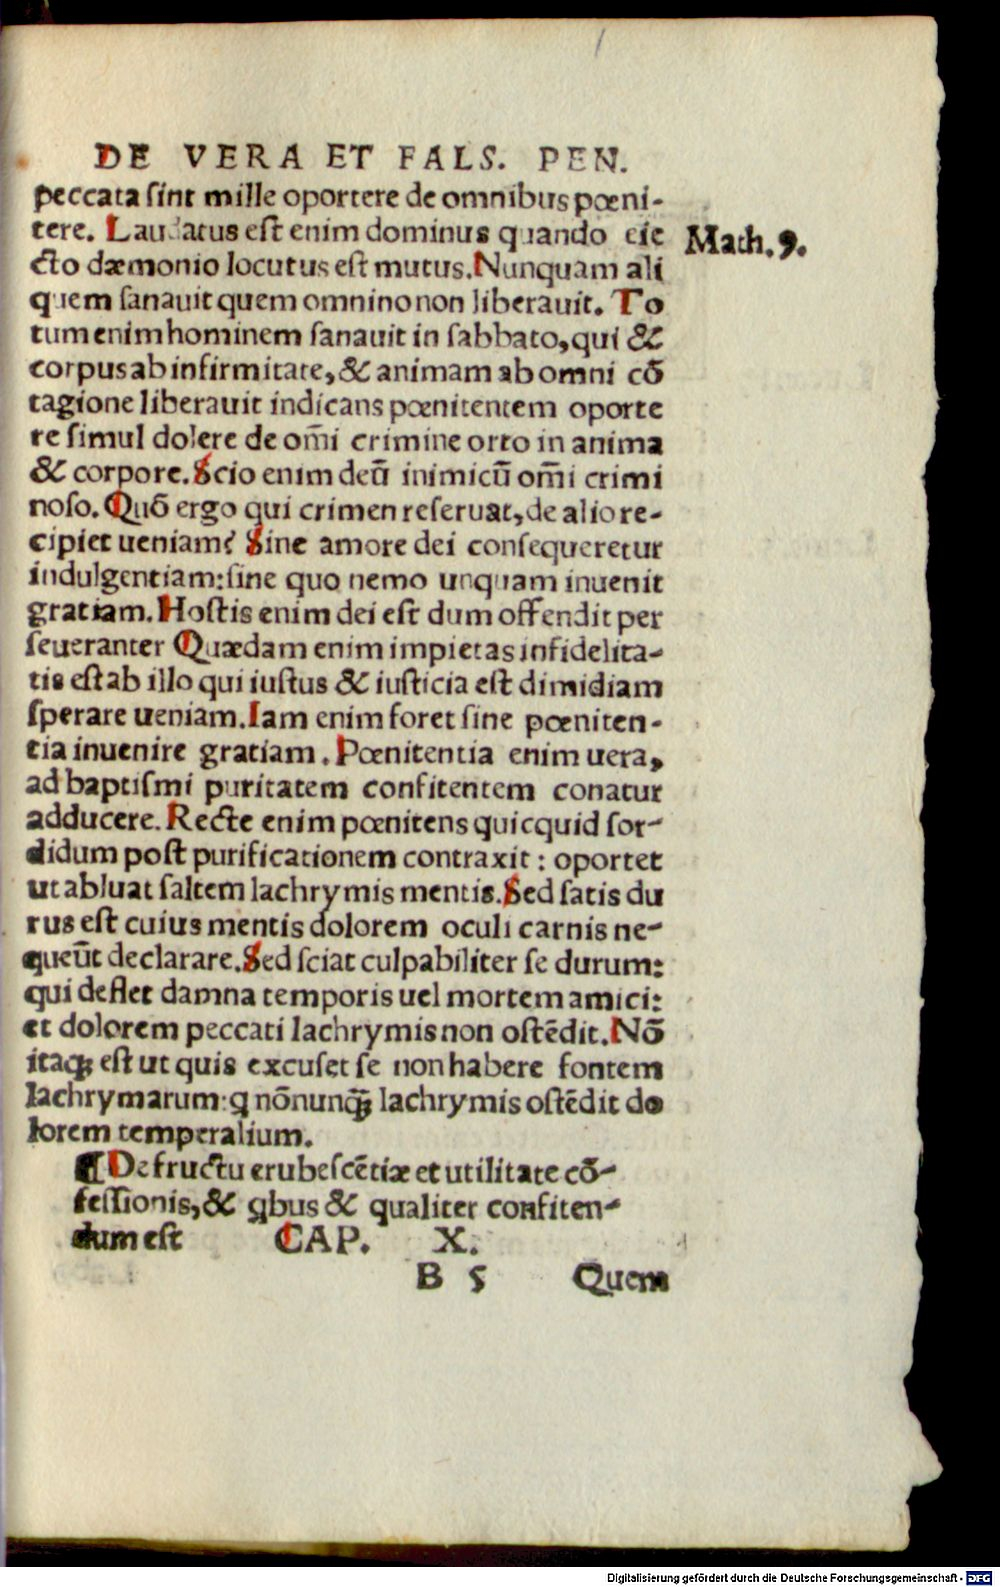 DE VERA ET FALS. PEN.
peccata sint mille oportere de omnibus pœni-
tere. Laudatus est enim dominus quando eie
cto dæmonio locutus est mutus. Nunquam ali
Math. 9.
quem sanauit quem omnino non liberauit. To
tum enim hominem sanauit in sabbato, qui &
corpus ab infirmitate, & animam ab omni cõ
tagione liberauit indicans pœnitentem oporte
re simul dolere de om̃i crimine orto in anima
& corpore. Scio enim deũ inimicũ om̃i crimi
noso. Quõ ergo qui crimen reseruat, de alio re-
cipiet ueniam? Sine amore dei consequeretur
indulgentiam: sine quo nemo unquam inuenit
gratiam. Hostis enim dei est dum offendit per
seueranter Quædam enim impietas infidelita-
tis est ab illo qui iustus & iusticia est dimidiam
sperare ueniam. Iam enim foret sine pœniten-
tia inuenire gratiam. Pœnitentia enim uera,
ad baptismi puritatem confitentem conatur
adducere. Recte enim pœnitens quicquid sor-
didum post purificationem contraxit: oportet
ut abluat saltem lachrymis mentis. Sed satis du
rus est cuius mentis dolorem oculi carnis ne-
queũt declarare. Sed sciat culpabiliter se durum:
qui deflet damna temporis uel mortem amici:
et dolorem peccati lachrymis non ostẽdit. Nõ
itaqꝫ est ut quis excuset se non habere fontem
lachrymarum: q nõnunq̃ꝫ lachrymis ostẽdit do
lorem temperalium.
¶ De fructu erubescẽtiæ et utilitate cõ-
fessionis, & qbus & qualiter confiten-
dum est CAP. X.
B 5 Quem
Digitalisierung gefördert durch die Deutsche Forschungsgemeinschaft - DFG